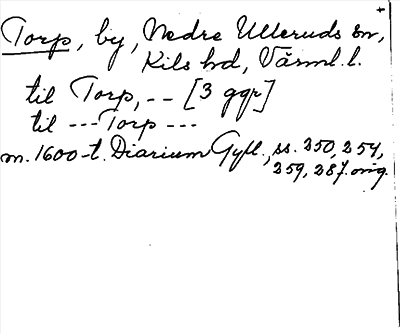 Torp, by, Nedre Ulleruds sn,
Kils hd, Värml. l.
til Torp, -- [3 ggr]
til --- Torp ---
m. 1600-t. Diarium Gyll., ss. 250, 254,
259, 287. orig.